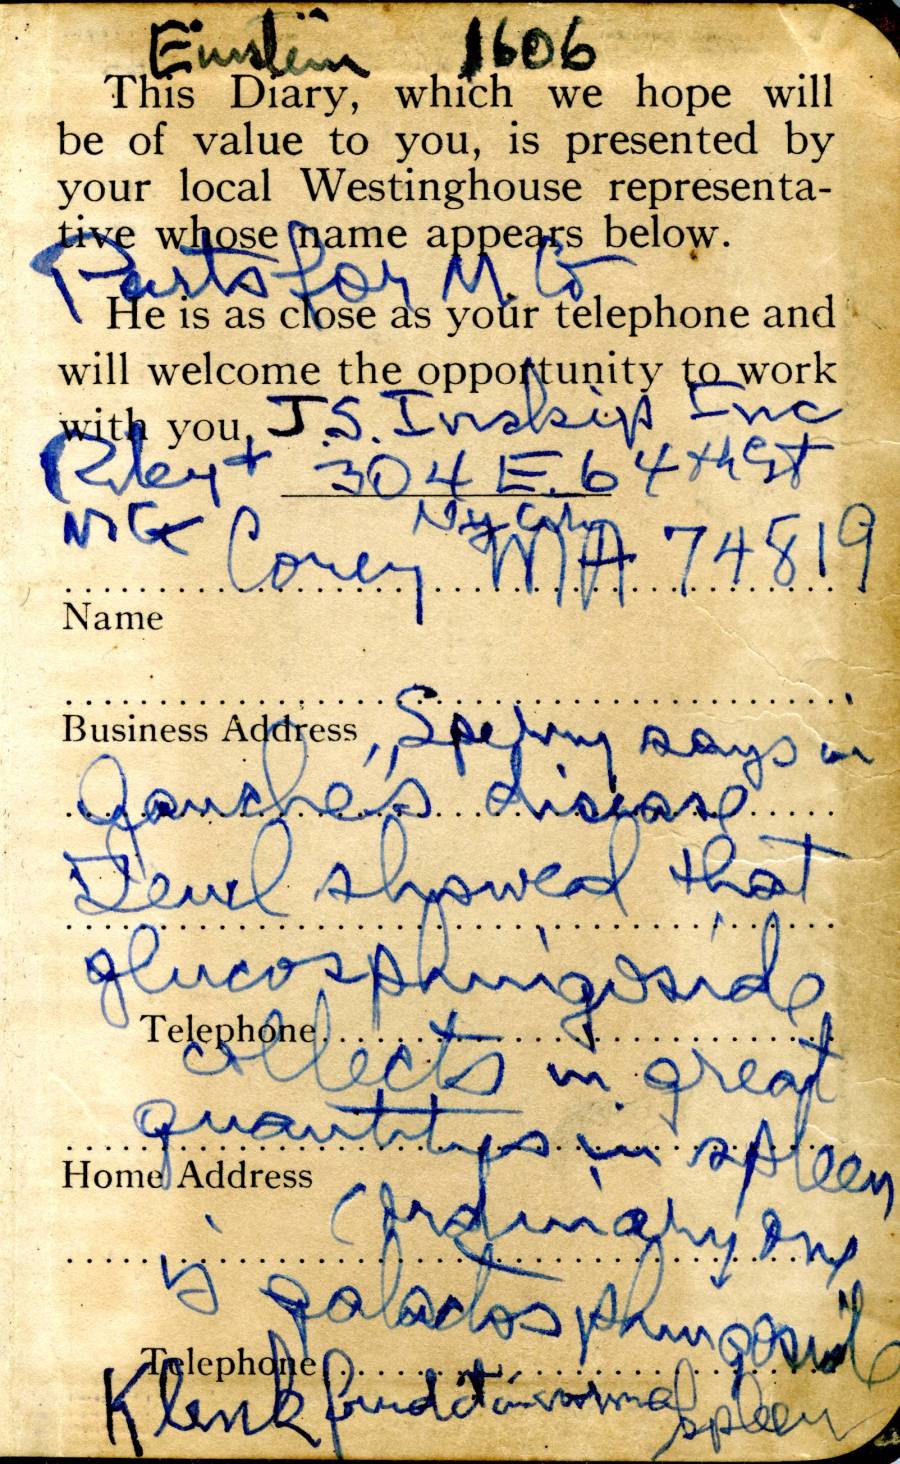 Einstein 1606
This Diary, which we hope will
be of value to you, is presented by
your local Westinghouse representa-
tive whose name appears below.
Parts for M. G
He is as close as your telephone and
will welcome the opportunity to work
with you. J.S. Inskip Inc
304 E. 64th St
Ny City
Corey MA 74819
Name
Business Address
Sperry says in
Gaucher's disease
showed that
glucosphingoside
Telephone
collects in great
quantitys in spleen
Home Address
(ordinary one
is galactosphingoside
Telephone
Klenk found it in normal
spleen